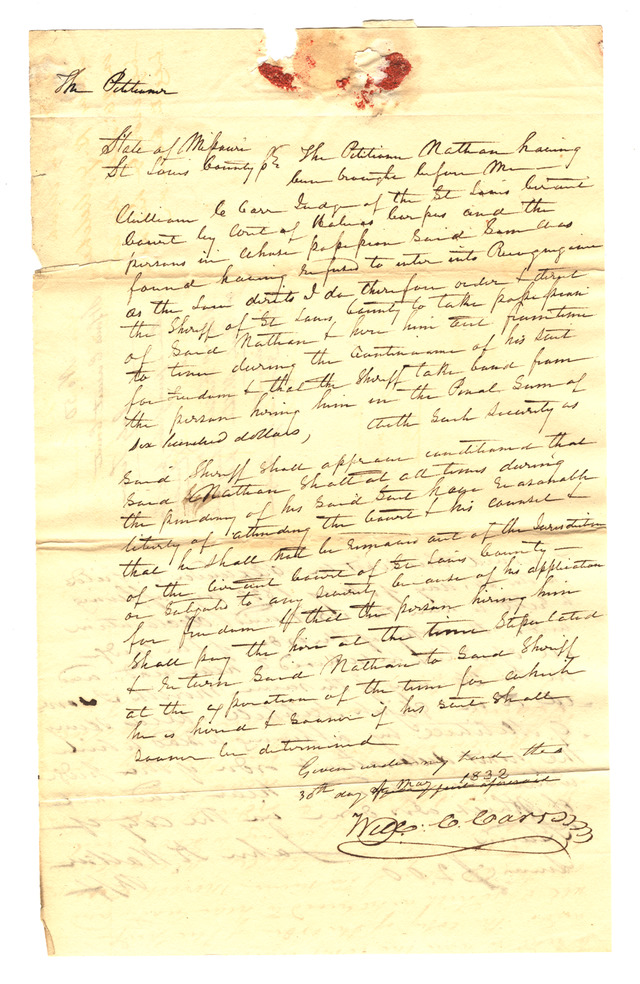 The Petitioner
State of Missouri
St Louis County The Petitioner Nathan having
been brought before Me
William C Carr Judge of the St Louis Circuit
Court by Writ of Habeas Corpus and the
persons in whose possession Said Sam was
found having refused to enter into Recognizance
as the Law directs I do therefore order & direct
the Sheriff of St Louis County to take possession
of Said Nathan & hire him out from time
to time during the Continuance of his Suit
for freedom & that the Sheriff take bond from
the person hiring him in the Penal Sum of
Six hundred dollars, with Such Security as
Said Sheriff Shall approve conditioned that
Said Nathan Shall at all times during
the pending of his Said Suit have reasonable
liberty of attending the Court & his counsel &
that he shall not be removed out of the Jurisdiction
of the Circuit Court of St Louis County —
or Subjected to any Severity because of his application
for freedom & that the person hiring him
Shall pay the hire at the time Stipulated
& return Said Nathan to Said Sheriff
at the expiration of the term for which
he is hired & Sooner if his Suit Shall
Sooner be determined
Given under my hand this
30th day of May 1832
Wm. C. Carr